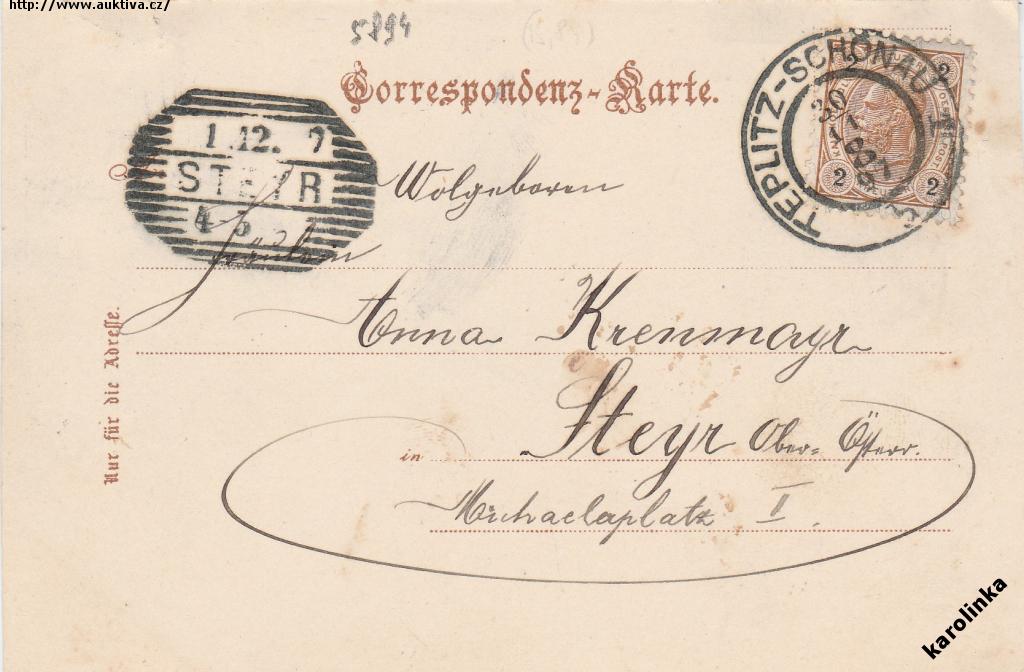 http://www.auktiva.cz/
5894
Correspondenz-Karte.
TEPLITZ-SCHÖNAU 1
30
11
897
2 2
2 2
1.12. 7
STEYR
4-5
Wolgeboren
Fräulein
Anna Krenmayr
Steyr Ober= Österr.
in
Michaelaplatz II.
Nur für die Adresse.
karolinka